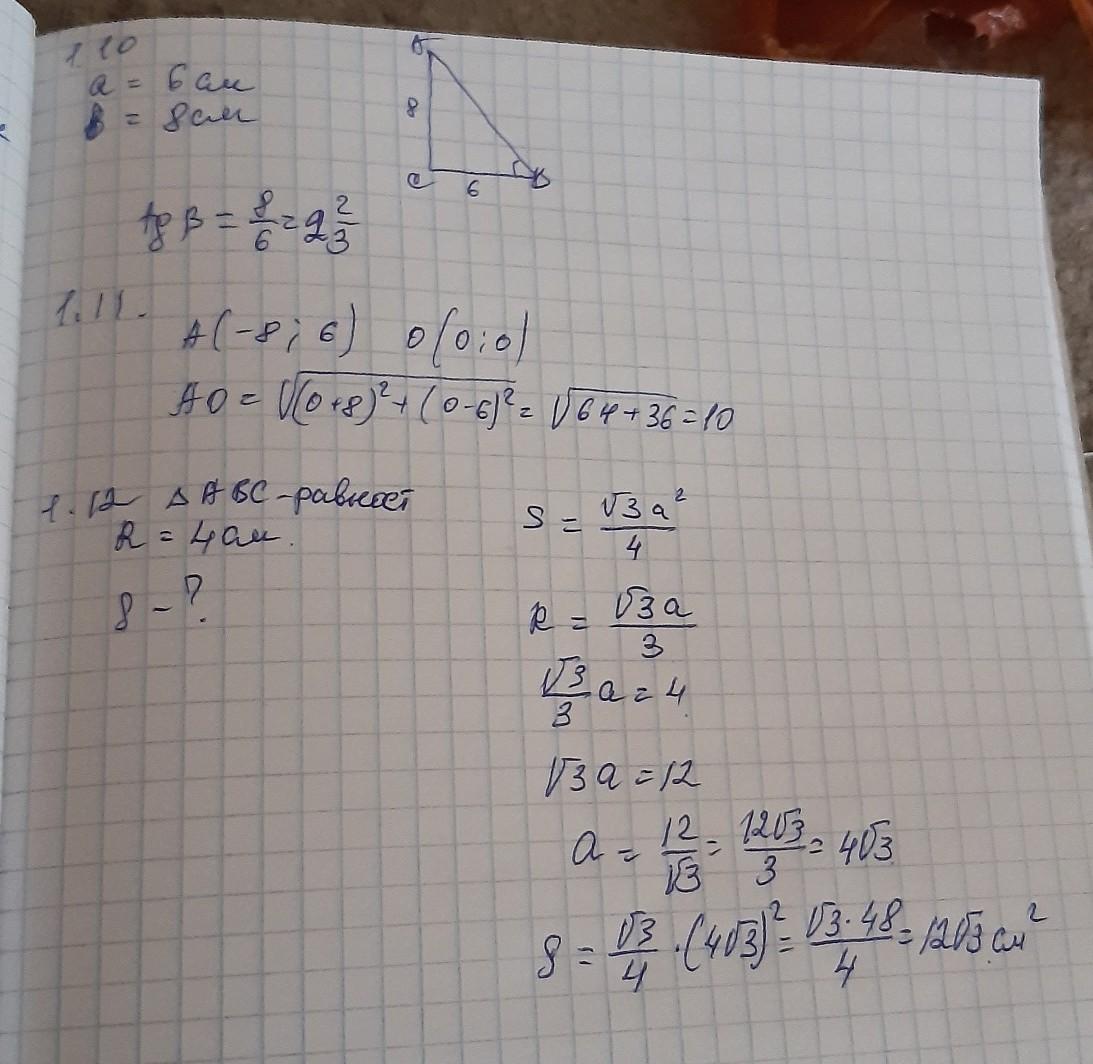 1.10
a = 6 см
в = 8 см
A
8
C 6 B
tg B = 8/6 = 2 2/3
1.11.
A(-8; 6) O(0; 0)
AO = √((0+8)² + (0-6)²) = √(64+36) = 10
1.12 △ ABC - равност
R = 4 см.
S - ?
S = √3a²/4
R = √3a/3
√3/3 a = 4
√3a = 12
a = 12/√3 = 12√3/3 = 4√3
S = √3/4 · (4√3)² = √3·48/4 = 12√3 см²